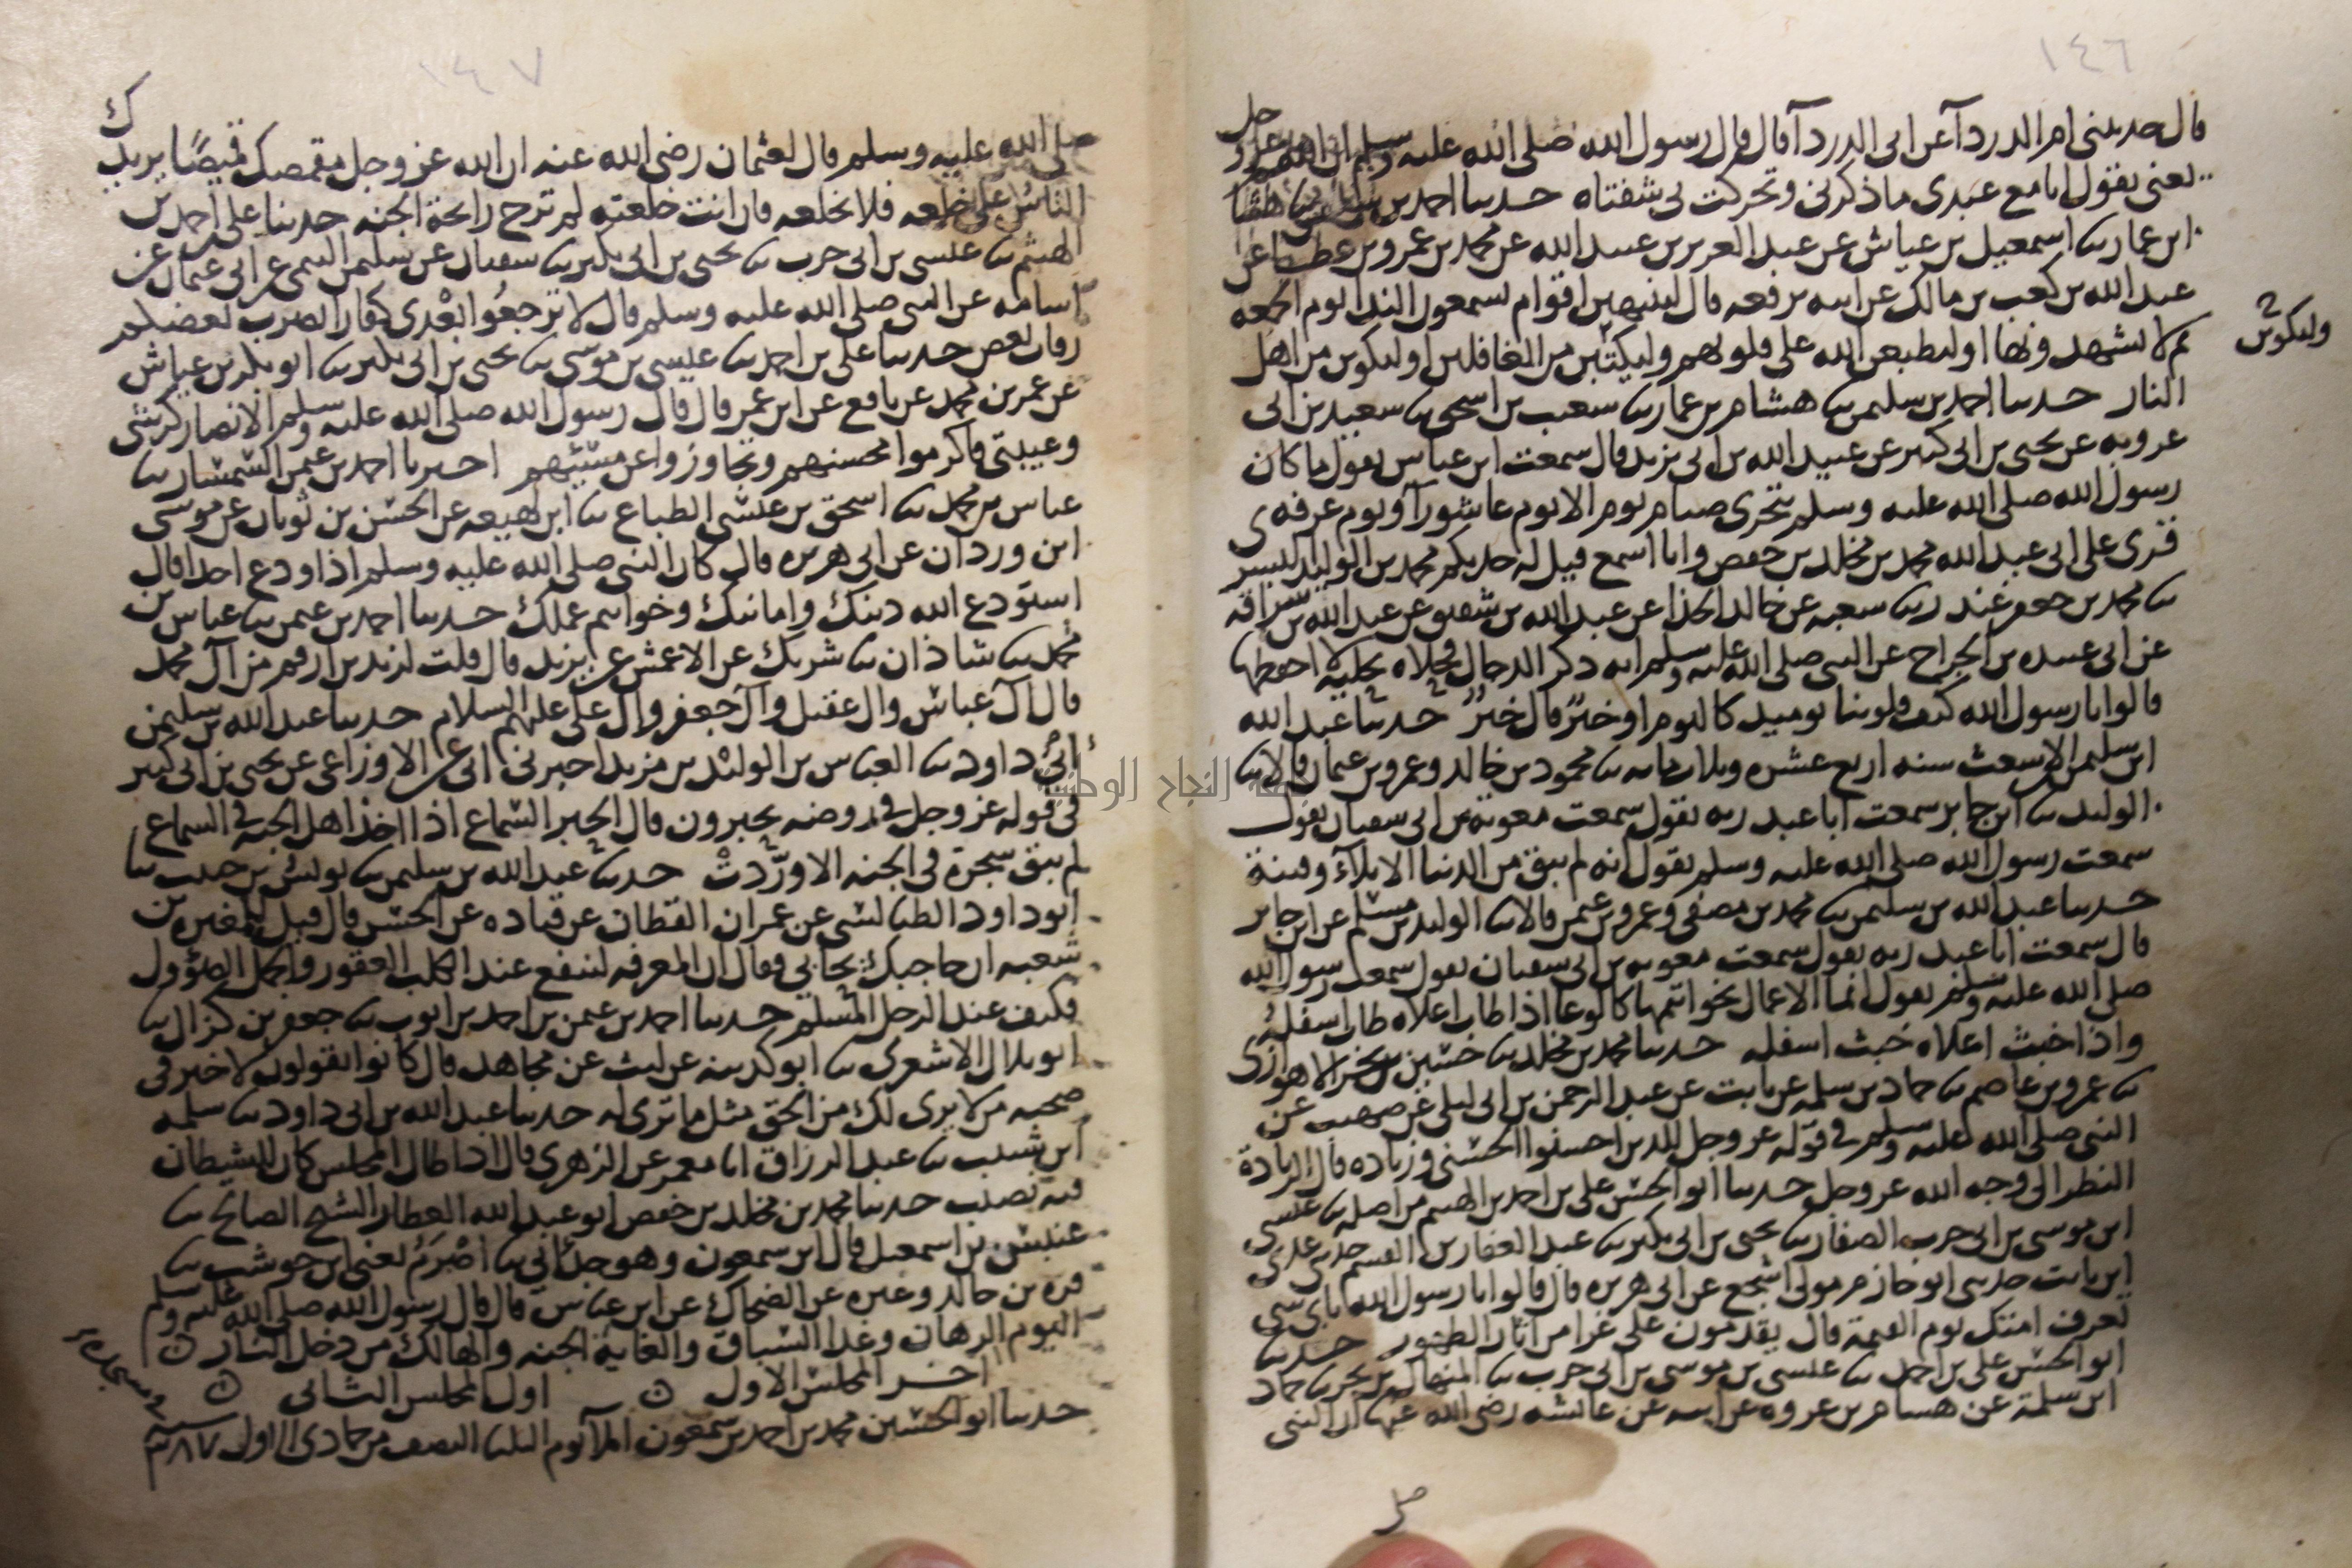 ١٤٦
قال حدثتني ام الدردآ عن ابي الدردآ قال قال رسول الله صلى الله عليه وسلم ان الله عز وجل
يعني يقول انا مع عبدي ما ذكرني وتحركت بي شفتاه حدثنا احمد بن سليمن هشام
ابن عمار سا اسمعيل بن عياش عن عبد العزيز بن عبيد الله عن محمد بن عمرو بن عطا عن
عبد الله بن كعب بن مالك عن ابيه يرفعه قال لينتهين اقوام يسمعون الندا يوم الجمعه
ثم لا يشهدونها او ليطبعن الله على قلوبهم وليكتبن من الغافلين او ليكونن من اهل
وليكونن
النار حدثنا احمد بن سليمن سا هشام بن عمار سا شعيب بن اسحق سا سعيد بن ابي
عروبه عن يحيى بن ابي كثير عن عبيد الله بن ابي يزيد قال سمعت ابن عباس يقول ما كان
رسول الله صلى الله عليه وسلم يتحرى صيام يوم الا يوم عاشورآ ويوم عرفه
قرى على ابي عبد الله محمد بن مخلد بن حفص وانا اسمع قيل له حدثكم محمد بن الوليد البسر
سا محمد بن جعفر غندر سا شعبه عن خالد الحذا عن عبد الله بن شقيق عن عبد الله بن سراقه
عن ابي عبيده بن الجراح عن النبي صلى الله عليه وسلم انه ذكر الدجال فجلاه بحليه لا احفظها
قالوا يا رسول الله كيف قلوبنا يوميذ كاليوم او خير قال خير حدثنا عبد الله
ابن سليمن الاشعث سنه اربع عشره وثلاثمايه سا محمود بن خالد وعمرو بن عثمان قالا سا
الوليد سا ابن جابر سمعت ابا عبد ربه يقول سمعت معوية بن ابي سفيان يقول
سمعت رسول الله صلى الله عليه وسلم يقول انه لم يبق من الدنيا الا بلاء وفتنة
حدثنا عبد الله بن سليمن سا محمد بن مصفى وعمرو بن عثمن قالا سا الوليد بن مسلم عن ابن جابر
قال سمعت ابا عبد ربه يقول سمعت معويه بن ابي سفيان يقول سمعت رسول الله
صلى الله عليه وسلم يقول انما الاعمال بخواتمها كالوعا اذا طاب اعلاه طاب اسفله
واذا خبث اعلاه خبث اسفله حدثنا محمد بن مخلد سا حسين بن بحر الاهوازي
سا عمرو بن عاصم سا حماد بن سلمه عن ثابت عن عبد الرحمن بن ابي ليلى عن صهيب عن
النبي صلى الله عليه وسلم في قوله عز وجل للذين احسنوا الحسنى وزياده قال الزيادة
النظر الى وجه الله عز وجل حدثنا ابو الحسن علي بن احمد بن الهيثم من اصله سا عيسى
ابن موسى بن ابي حرب الصفار سا يحيى بن ابي بكير سا عبد الغفار بن القسم حدثني عدي
ابن ثابت حدثني ابو حازم مولى اشجع عن ابي هريره قال قالوا يا رسول الله باي شي
تعرف امتك يوم القيمة قال يقدمون علي غرا من اثار الطهور حدثنا
ابو الحسن علي بن احمد سا عيسى بن موسى بن ابي حرب سا المنهال بن بحر سا حماد
ابن سلمة عن هشام بن عروه عن ابيه عن عائشه رضي الله عنها ان النبي
صلى
١٤٧
صلى الله عليه وسلم قال لعثمان رضي الله عنه ان الله عز وجل مقمصك قميصا يريدك
الناس على خلعه فلا تخلعه فان انت خلعته لم ترح رائحة الجنه حدثنا علي بن احمد بن
الهيثم سا عيسى بن ابي حرب سا يحيى بن ابي بكير سا سفيان عن سليمن التيمي عن ابي عثمان عن
اسامه عن النبي صلى الله عليه وسلم قال لا ترجعوا بعدي كفارا يضرب بعضكم
رقاب بعض حدثنا علي بن احمد سا عيسى بن موسى سا يحيى بن ابي بكير سا ابو بكر بن عياش
عن عمر بن محمد عن نافع عن ابن عمر قال قال رسول الله صلى الله عليه وسلم الانصار كرشي
وعيبتي فاكرموا محسنهم وتجاوزوا عن مسيئهم اخبرنا احمد بن عثمن السمسار سا
عباس بن محمد سا اسحق بن عيسى الطباع سا ابن لهيعه عن الحسن بن ثوبان عن موسى
ابن وردان عن ابي هريره قال كان النبي صلى الله عليه وسلم اذا ودع احدا قال
استودع الله دينك وامانتك وخواتيم عملك حدثنا احمد بن عثمن سا عباس بن
محمد سا شاذان سا شريك عن الاعمش عن يزيد قال قلت لزيد بن ارقم من آل محمد
قال آل عباس وال عقيل وآل جعفر وآل علي عليهم السلام حدثنا عبد الله بن سليمن
ابي داود سا العباس بن الوليد بن مزيد اخبرني ابي عن الاوزاعي عن يحيى بن ابي كثير
في قوله عز وجل في روضه يحبرون قال الحبر السماع اذا اخذ اهل الجنه في السماع
لم يبق شجرة في الجنه الا وردت حدثنا عبد الله بن سليمن سا يونس بن حبيب سا
ابو داود الطيالسي عن عمران القطان عن قتاده عن الحسن قال قيل للمغيره بن
شعبه ان حاجبك يحابي فقال ان المعرفه لتنفع عند الكلب العقور والجمل الصؤول
فكيف عند الرجل المسلم حدثنا احمد بن عثمن بن احمد بن ايوب سا جعفر بن كزال سا
ابو بلال الاشعري سا ابو كدينه عن ليث عن مجاهد قال كانوا يقولون لا خير في
صحبه من لا يرى لك من الحق مثل ما ترى له حدثنا عبد الله بن ابي داود سا سلمه
ابن شبيب سا عبد الرزاق انا معمر عن الزهري قال اذا طال المجلس كان للشيطان
فيه نصيب حدثنا محمد بن مخلد بن حفص ابو عبد الله العطار الشيخ الصالح سا
عنبس بن اسمعيل قال ابن سمعون وهو جد ابي سا اصرم يعني ابن حوشب سا
قره بن خالد وغيره عن الضحاك عن ابن عباس قال قال رسول الله صلى الله عليه وسلم
اليوم الرهان وغدا السباق والغاية الجنه والهالك من دخل النار
اخر المجلس الاول اول المجلس الثاني
حدثنا ابو الحسين محمد بن احمد بن سمعون املا يوم الثلثا النصف من جمادى الاول ٣٨٧
النجاح الوطنية